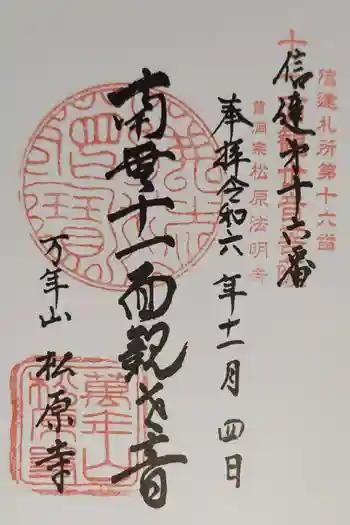 信達札所第十六番
信達第十六番
曹洞宗松原法明寺
奉拝令和六年十一月四日
南無十一面観世音
万年山
松原寺
萬年山
松原寺